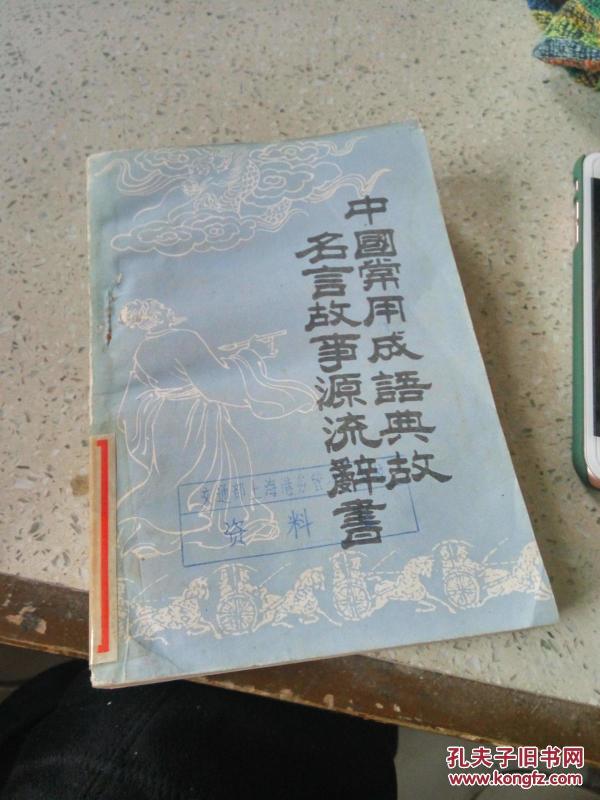 中國常用成語典故
名言故事源流辭書
交通部上海港务监
资料
孔夫子旧书网
www.kongfz.com